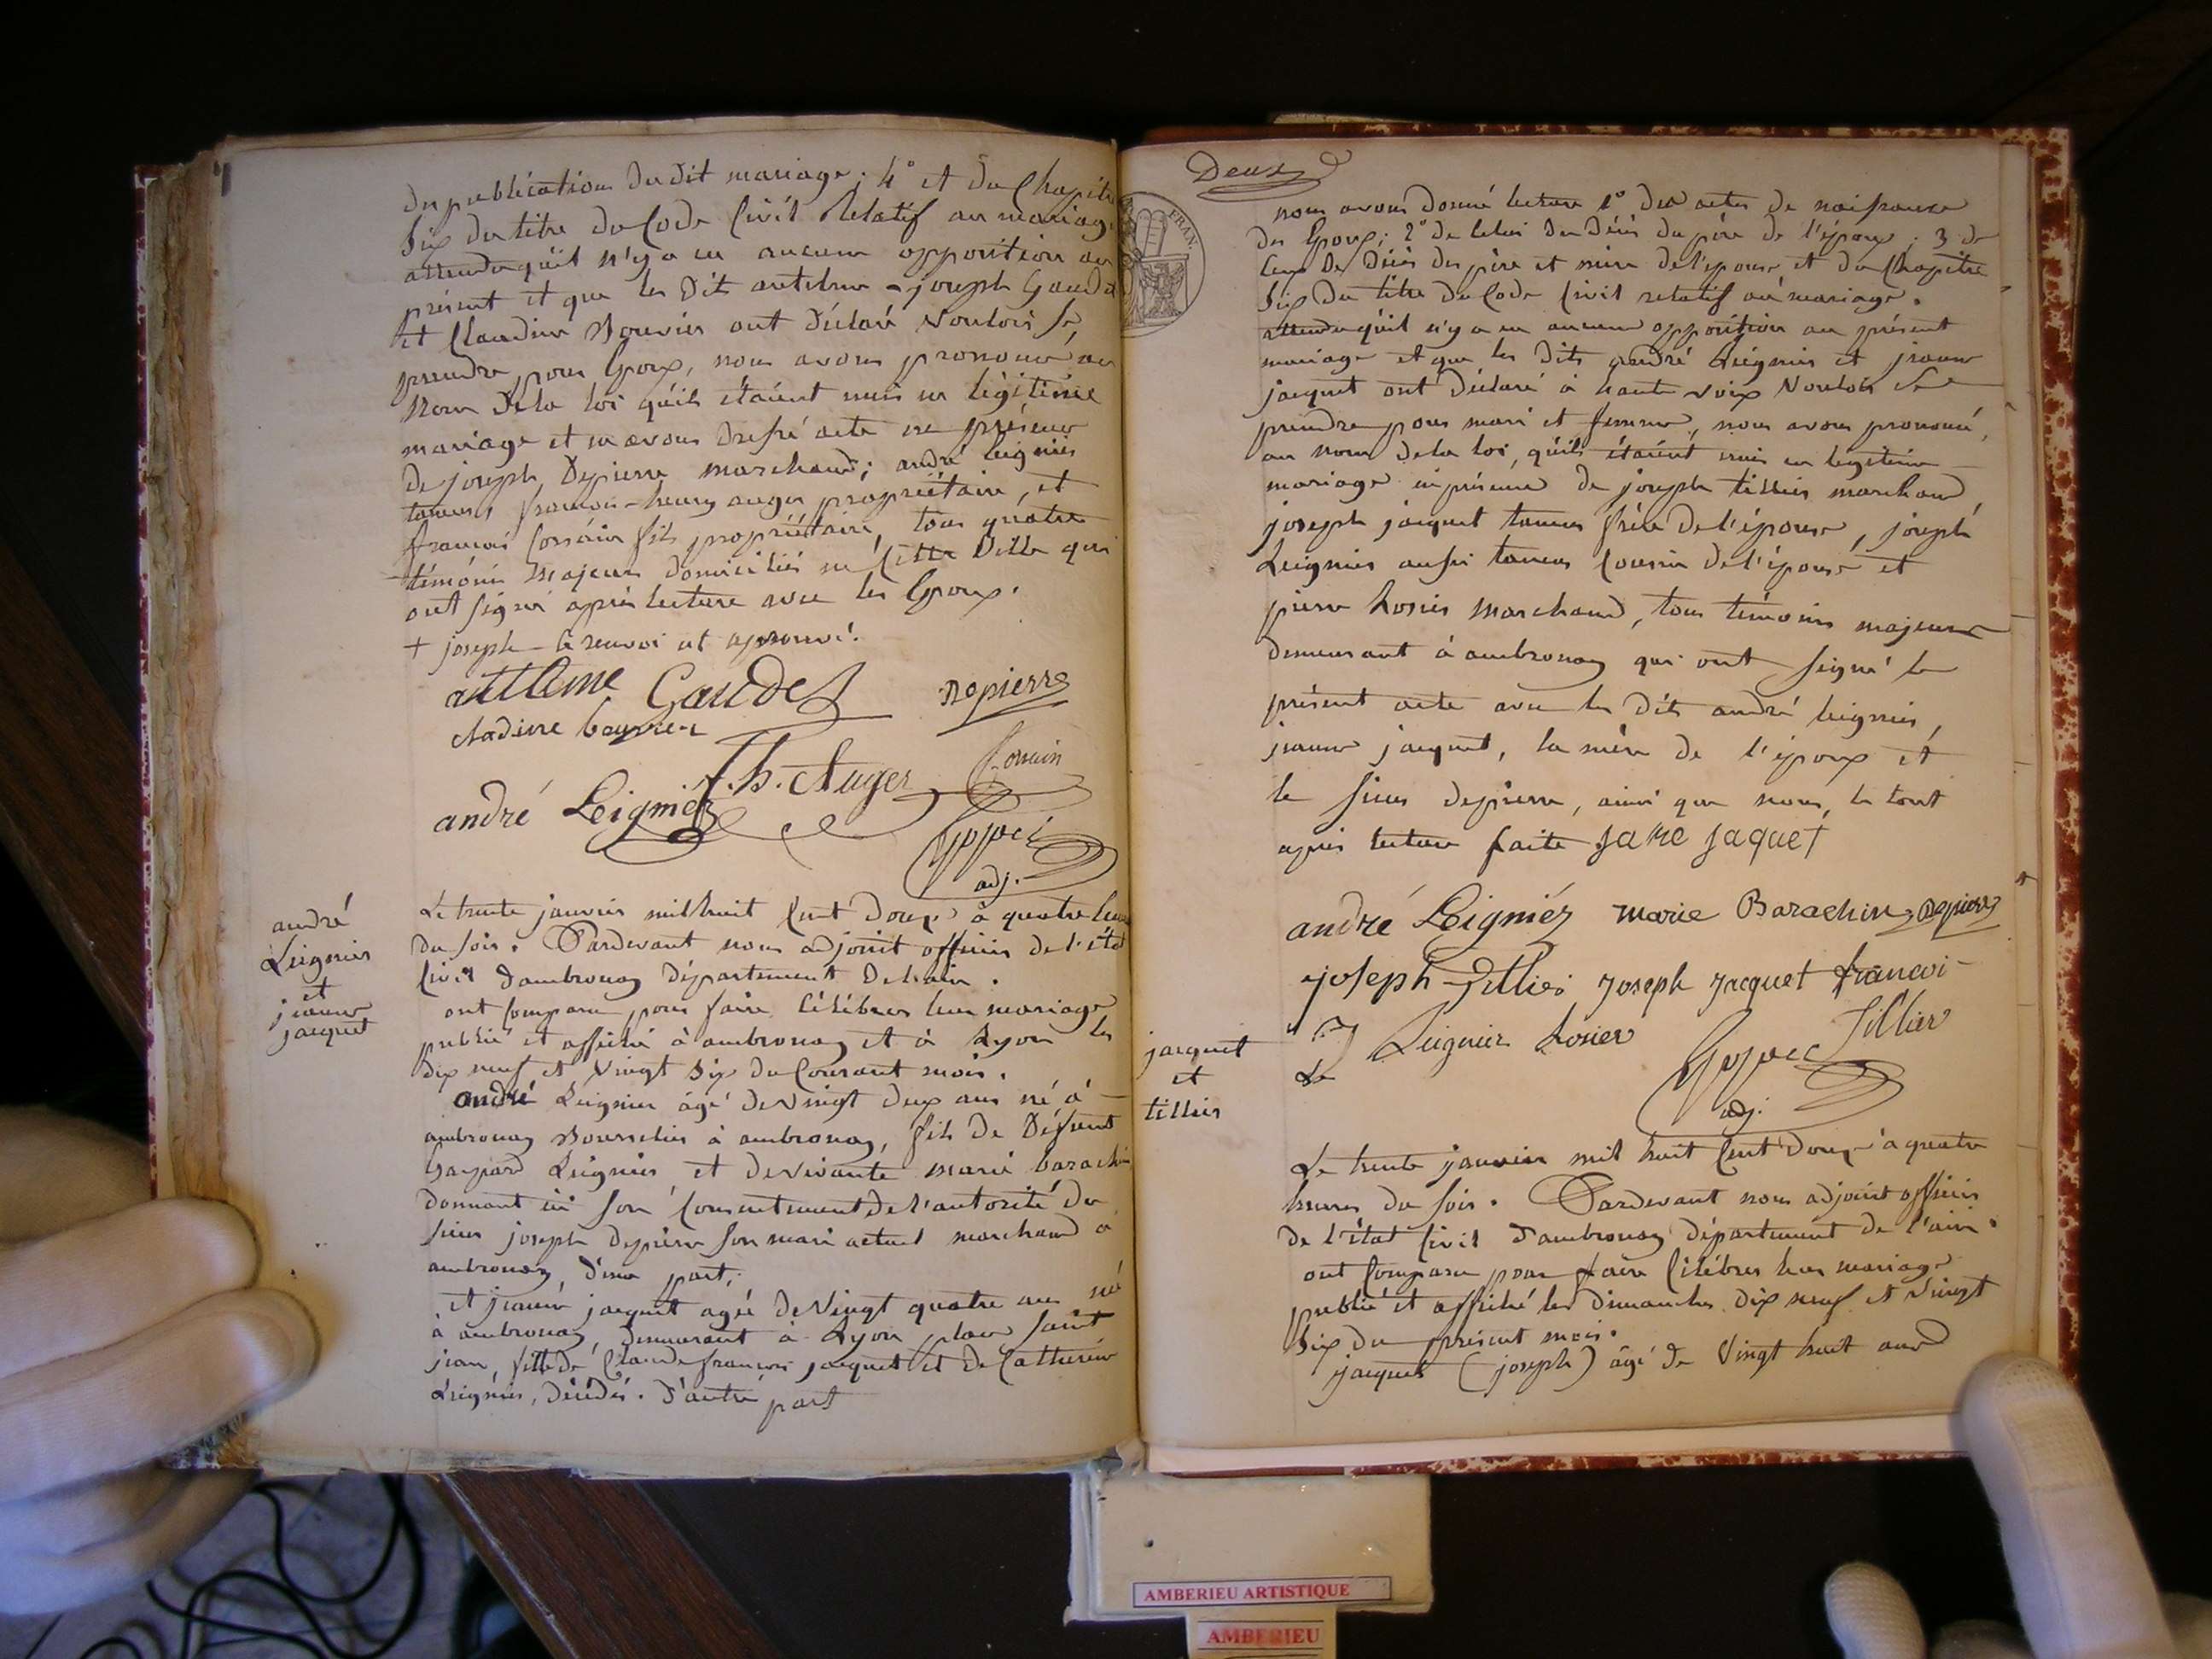 de publication du dit mariage; 4° et du Chapitre
Six du titre du Code Civil Relatif au mariage
attendu qu'il n'y a eu aucune opposition au
présent et que les dit antelme - joseph Gaudet
et Claudine Bouvier ont déclaré vouloir se
prendre pour Epoux, nous avons prononcé au
Nom de la loi qu'ils étaient unis en légitime
mariage et en avons dressé acte en présence
de joseph Depierre marchand; andré Leignier
tanneur, françois-henry auger propriétaire, et
françois Corrain fils propriétaire, tous quatre
témoins Majeurs domiciliés en Cette Ville qui
ont signé après lecture avec les Epoux.
+ joseph - le renvoi est approuvé.
antleme Gaudet Depierre
cladine bouvier
f. h. Auger Corrain
andré Leigniéz
adj.
andré
Leignier
et
jeanne
jacquet
Le trente janvier mil huit Cent douze à quatre heures
du soir. Pardevant nous adjoint officier de l'état
Civil d'ambronay département de l'ain.
ont Comparu pour faire Célébrer leur mariage
publié et affiché à ambronay et à Lyon les
dix neuf et vingt Six du Courant mois.
andré Leignier âgé de vingt deux ans né à
ambronay Bourrelier à ambronay, fils de Défunt
Gaspard Leignier et de vivante marie barachin
donnant ici son Consentement de l'autorité du
sieur joseph depierre son mari actuel marchand à
ambronay, d'une part;
et jeanne jacquet agée de vingt quatre ans né
à ambronay, demeurant à Lyon, place Saint
jean, fille de Claude françois jacquet et de Catherine
Leignier, décédés. d'autre part
Deux
FRAN.
nous avons donné lecture 1° des actes de naissance
des Epoux; 2° de Celui du Décès du père de l'époux; 3 de
Ceux de Décès des père et mère de l'épouse et du Chapitre
Six du titre du Code Civil relatif au mariage.
attendu qu'il n'y a eu aucune opposition au présent
mariage et que les dits andré Leignier et jeanne
jacquet ont déclaré à haute voix vouloir se
prendre pour mari et femme, nous avons prononcé,
au nom de la loi, qu'ils étaient unis en légitime
mariage en présence de joseph tillier marchand
joseph jacquet tanneur frère de l'épouse, joseph
Leignier aussi tanneur Cousin de l'épouse et
pierre Rosier Marchand, tous témoins majeurs
demeurant à ambronay qui ont signé le
présent acte avec les dits andré leignier,
jeanne jacquet, la mère de l'époux et
le sieur depierre, ainsi que nous, le tout
après lecture faite Jane Jaquet
andré Leigniéz marie Barachin Depierre
joseph Tillier Joseph Jacquet francoi
J Leignier Rosier Tillier
Le
adj.
jacquet
et
tillier
Le trente janvier mil huit Cent douze à quatre
heures du soir. Pardevant nous adjoint officier
de l'état Civil d'ambronay département de l'ain.
ont Comparu pour faire Célébrer leur mariage
publié et affiché les dimanches dix neuf et vingt
Six du présent mois.
jacquet (joseph) âgé de Vingt huit ans
AMBERIEU ARTISTIQUE
AMBERIEU